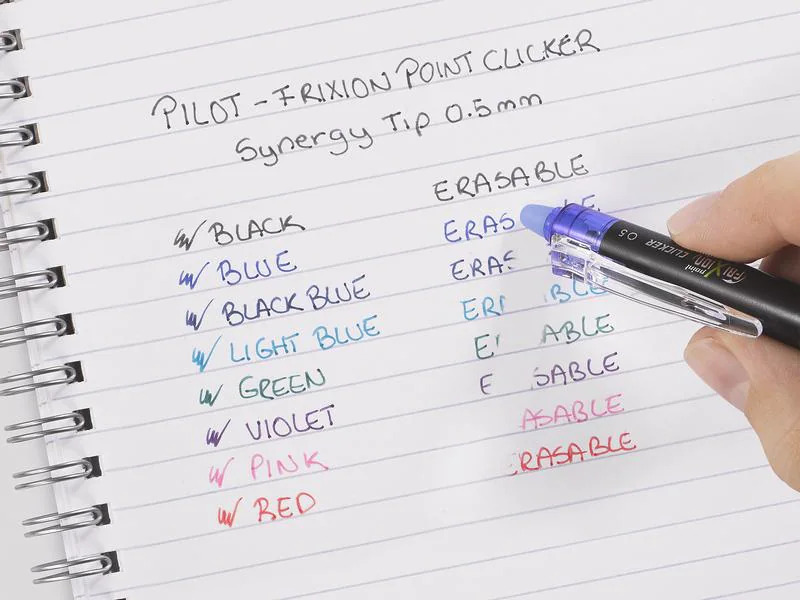 PILOT - FRIXION POINT CLICKER
Synergy Tip 0.5mm
ERASABLE
BLACK
ERAS LE
BLUE
ERAS
BLACK BLUE
ER BLE
LIGHT BLUE
E ABLE
GREEN
E SABLE
VIOLET
ASABLE
PINK
RASABLE
RED
FriXion point CLICKER 0.5